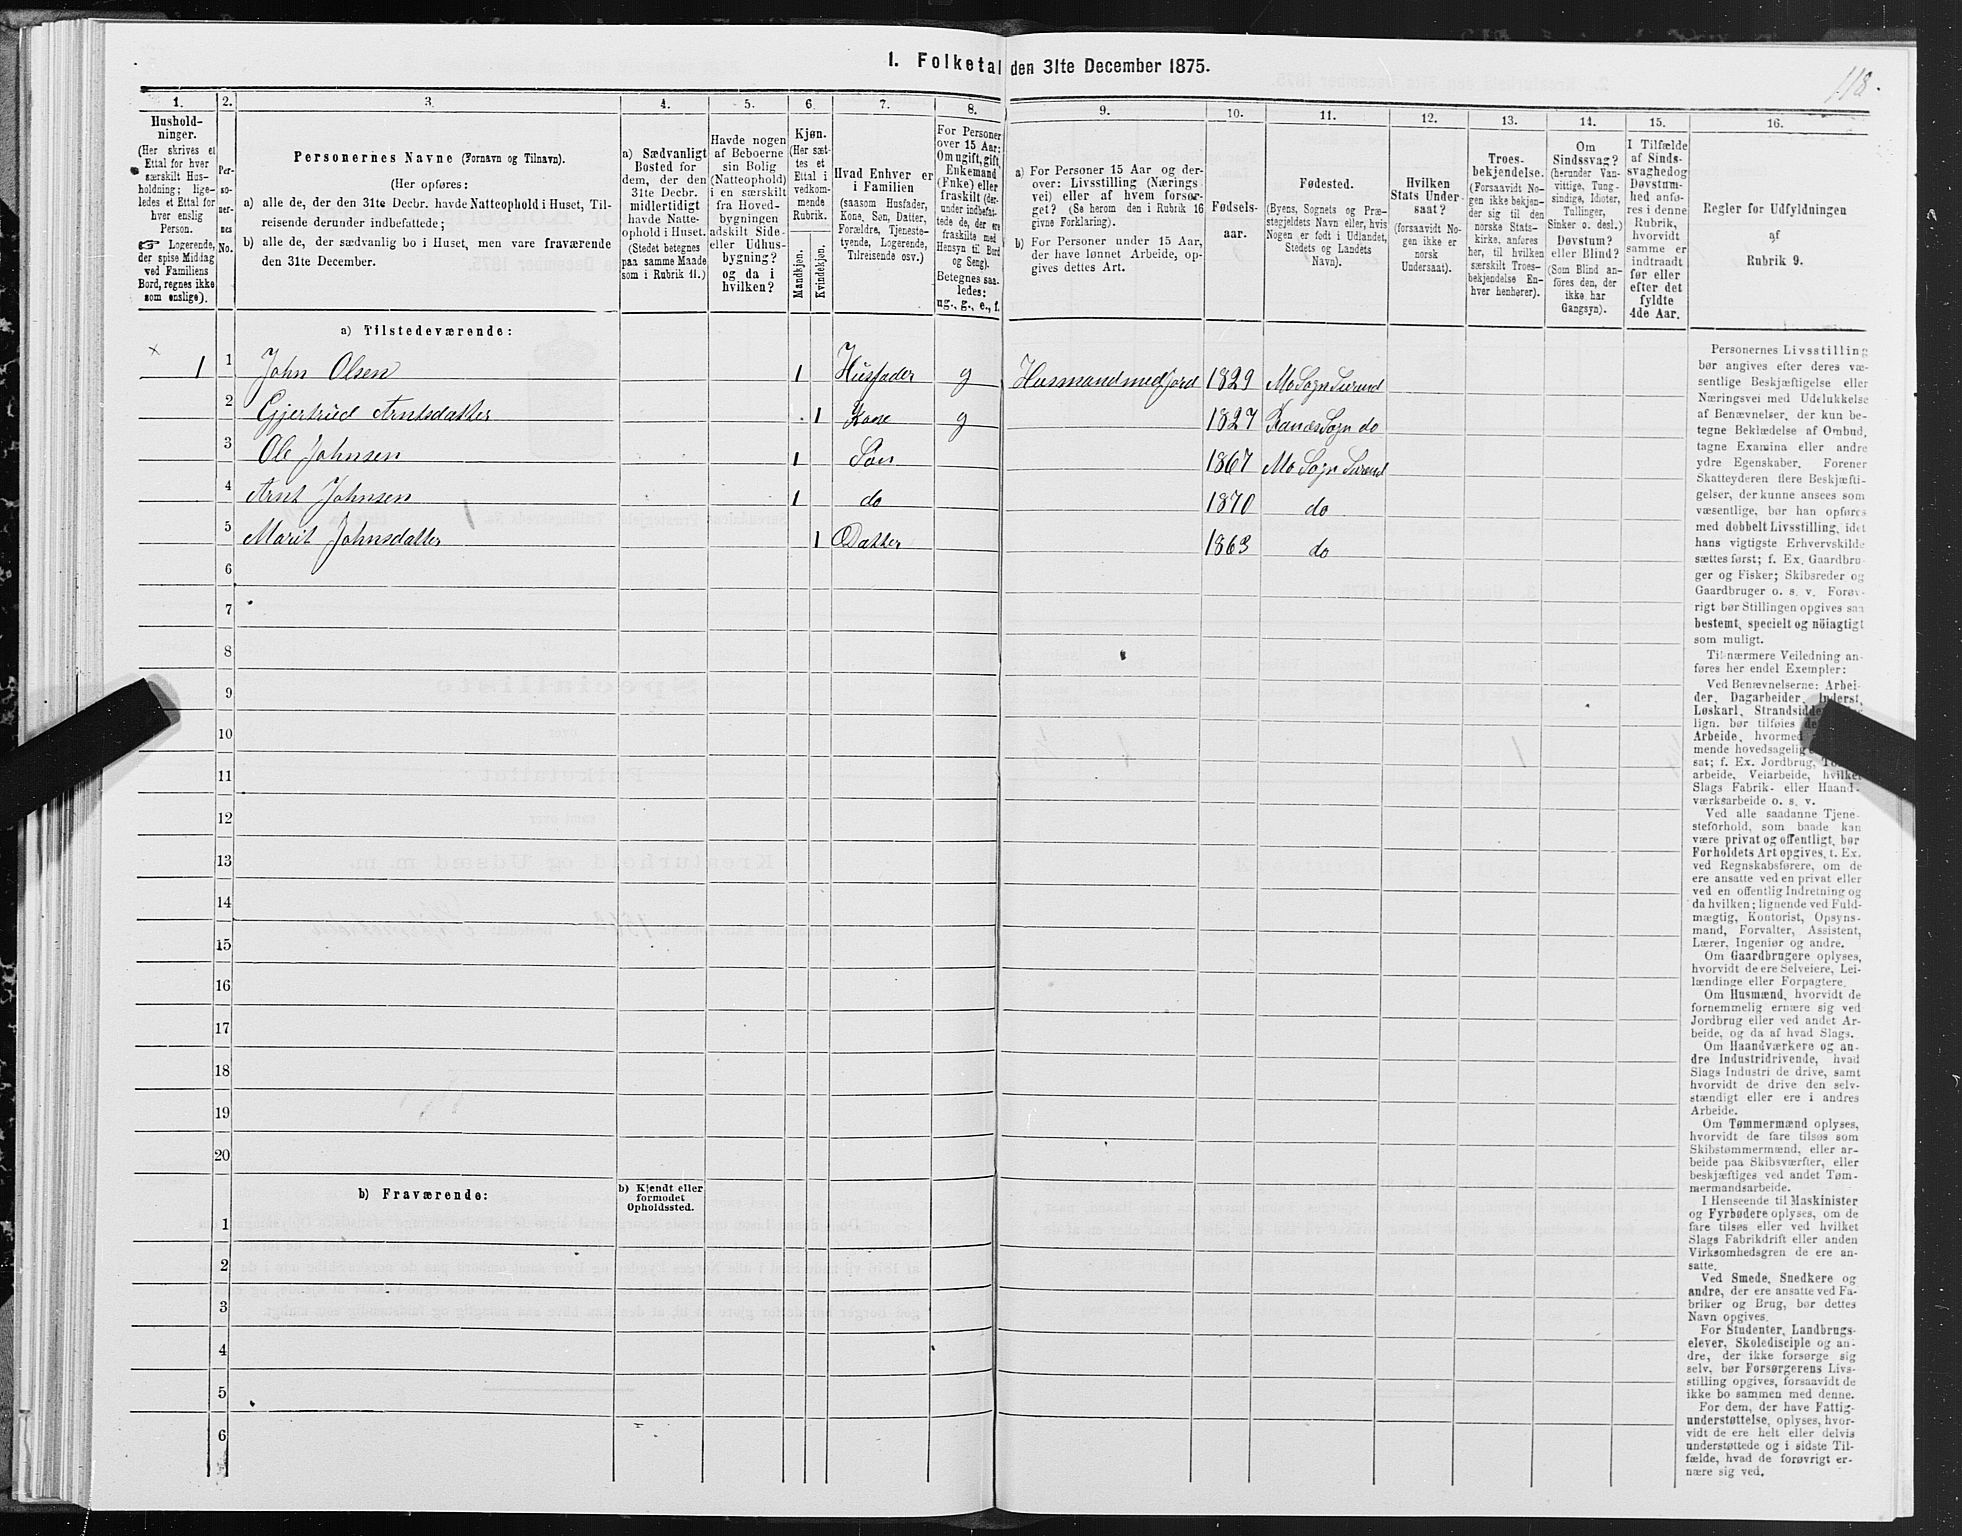 1. Folketal den 31te December 1875.
118.
1. 2. 3. 4. 5. 6. 7. 8. 9. 10. 11. 12. 13. 14. 15. 16.
Hushold-
ninger.
(Her skrives et
Ettal for hver
særskilt Hus-
holdning; lige-
ledes et Ettal for
hver enslig
Person.
☞ Logerende,
der spise Middag
ved Familiens
Bord, regnes ikke
som enslige).
Per-
so-
ner-
nes
No.
Personernes Navne (Fornavn og Tilnavn).
(Her opføres:
a) alle de, der den 31te Decbr. havde Natteophold i Huset, Til-
reisende derunder indbefattede;
b) alle de, der sædvanlig bo i Huset, men vare fraværende
den 31te December.
a) Sædvanligt
Bosted for
dem, der den
31te Decbr.
midlertidigt
havde Natte-
ophold i Huset.
(Stedet betegnes
paa samme Maade
som i Rubrik 11.)
Havde nogen
af Beboerne
sin Bolig
(Natteophold)
i en særskilt
fra Hoved-
bygningen
adskilt Side-
eller Udhus-
bygning?
og da i
hvilken?
Kjøn.
(Her sæt-
tes et
Ettal i
vedkom-
mende
Rubrik.
Mandkjøn.
Kvindekjøn.
Hvad Enhver er
i Familien
(saasom Husfader,
Kone, Søn, Datter,
Forældre, Tjeneste-
tyende, Logerende,
Tilreisende osv.)
For Personer
over 15 Aar:
Om ugift, gift,
Enkemand
(Enke) eller
fraskilt (der-
under indbefat-
tede de, der ere
fraskilte med
Hensyn til Bord
og Seng).
Betegnes saa-
ledes:
ug., g., e., f.
a) For Personer 15 Aar og der-
over: Livsstilling (Nærings-
vei) eller af hvem forsør-
get? (Se herom den i Rubrik 16
givne Forklaring).
b) For Personer under 15 Aar,
der have lønnet Arbeide, op-
gives dettes Art.
Fødsels-
aar.
Fødested.
(Byens, Sognets og Præ-
stegjeldets Navn eller, hvis
Nogen er født i Udlandet,
Stedets og Landets
Navn).
Hvilken
Stats Under-
saat?
(forsaavidt No-
gen ikke er
norsk
Undersaat).
Troes-
bekjendelse.
(Forsaavidt No-
gen ikke bekjen-
der sig til den
norske Stats-
kirke, anføres
her, til hvilken
særskilt Troes-
bekjendelse En-
hver henhører).
Om
Sindssvag?
(herunder Van-
vittige, Tung-
sindige, Idioter,
Tullinger,
Sinker o. desl.)
Døvstum?
eller Blind?
(Som Blind an-
føres den, der
ikke har
Gangsyn).
I Tilfælde
af Sinds-
svaghed og
Døvstum-
hed anfø-
res i denne
Rubrik,
hvorvidt
samme er
indtraadt
før eller
efter det
fyldte
4de Aar.
Regler for Udfyldningen
af
Rubrik 9.
a) Tilstedeværende:
1 1 John Olsen 1 Husfader g Husmand med jord 1829 Mo Sogn Surend
2 Gjertrud Arntsdatter 1 Kone g 1827 Ranæs Sogn do
3 Ole Johnsen 1 Søn 1867 Mo Sogn Surend
4 Arnt Johnsen 1 do 1870 do
5 Marit Johnsdatter 1 Datter 1863 do
6
7
8
9
10
11
12
13
14
15
16
17
18
19
20
b) Fraværende:
b) Kjendt eller
formodet
Opholdssted.
1
2
3
4
5
6
Personernes Livsstilling
bør angives efter deres væ-
sentlige Beskjæftigelse eller
Næringsvei med Udelukkelse
af Benævnelser, der kun be-
tegne Beklædelse af Ombud,
tagne Examina eller andre
ydre Egenskaber. Forener
Skatteyderen flere Beskjæfti-
gelser, der kunne ansees som
væsentlige, bør han opføres
med dobbelt Livsstilling, idet
hans vigtigste Erhvervskilde
sættes først; f. Ex. Gaardbru-
ger og Fisker; Skibsreder og
Gaardbruger o. s. v. Forøv-
rigt bør Stillingen opgives saa
bestemt, specielt og nøiagtigt
som muligt.
Til nærmere Veiledning an-
føres her endel Exempler:
Ved Benævnelserne: Arbei-
der, Dagarbeider, Inderst,
Løskarl, Strandsidder
lign. bør tilføies
Arbeide, hvormed
mende hovedsagelig
sat; f. Ex. Jordbrug,
arbeide, Veiarbeide, hvilket
Slags Fabrik- eller Haand-
værksarbeide o. s. v.
Ved alle saadanne Tjene-
steforhold, som baade kan
være privat og offentligt, bør
Forholdets Art opgives, t. Ex.
ved Regnskabsførere, om de
ere ansatte ved en privat eller
ved en offentlig Indretning og
da hvilken; lignende ved Fuld-
mægtig, Kontorist, Opsyns-
mand, Forvalter, Assistent,
Lærer, Ingeniør og andre.
Om Gaardbrugere oplyses,
hvorvidt de ere Selveiere, Lei-
lændinge eller Forpagtere.
Om Husmænd, hvorvidt de
fornemmelig ernære sig ved
Jordbrug eller ved andet Ar-
beide, og da af hvad Slags.
Om Haandværkere og an-
dre Industridrivende, hvad
Slags Industri de drive, samt
hvorvidt de drive den selv-
stændigt eller ere i andres
Arbeide.
Om Tømmermænd oplyses,
hvorvidt de fare tilsøs som
Skibstømmermænd, eller ar-
beide paa Skibsværfter, eller
beskjæftiges ved andet Tøm-
mermandsarbeide.
I Henseende til Maskinister
og Fyrbødere oplyses, om de
fare tilsøs eller ved hvilket
Slags Fabrikdrift eller anden
Virksomhedsgren de ere an-
satte.
Ved Smede, Snedkere og
andre, der ere ansatte ved Fa-
briker og Brug, bør dettes
Navn opgives.
For Studenter, Landbrugs-
elever, Skoledisciple og an-
dre, der ikke forsørge sig
selv, bør Forsørgerens Livs-
stilling opgives, forsaavidt de
ikke bo sammen med denne.
For dem, der have Fattig-
understøttelse, oplyses, hvor-
vidt de ere helt eller delvis
understøttede og i sidste Til-
fælde, hvad de forøvrigt er-
nære sig ved.